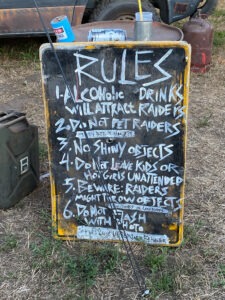 RULES
1. ALCOHOLIC DRINKS
WILL ATTRACT RAIDERS
2. DO NOT PET RAIDERS
3. NO SHINY OBJECTS
4. DO NOT LEAVE KIDS OR
HOT GIRLS UNATTENDED
5. BEWARE: RAIDERS
MIGHT THROW OBJECTS
6. DO NOT FLASH
WITH PHOTO